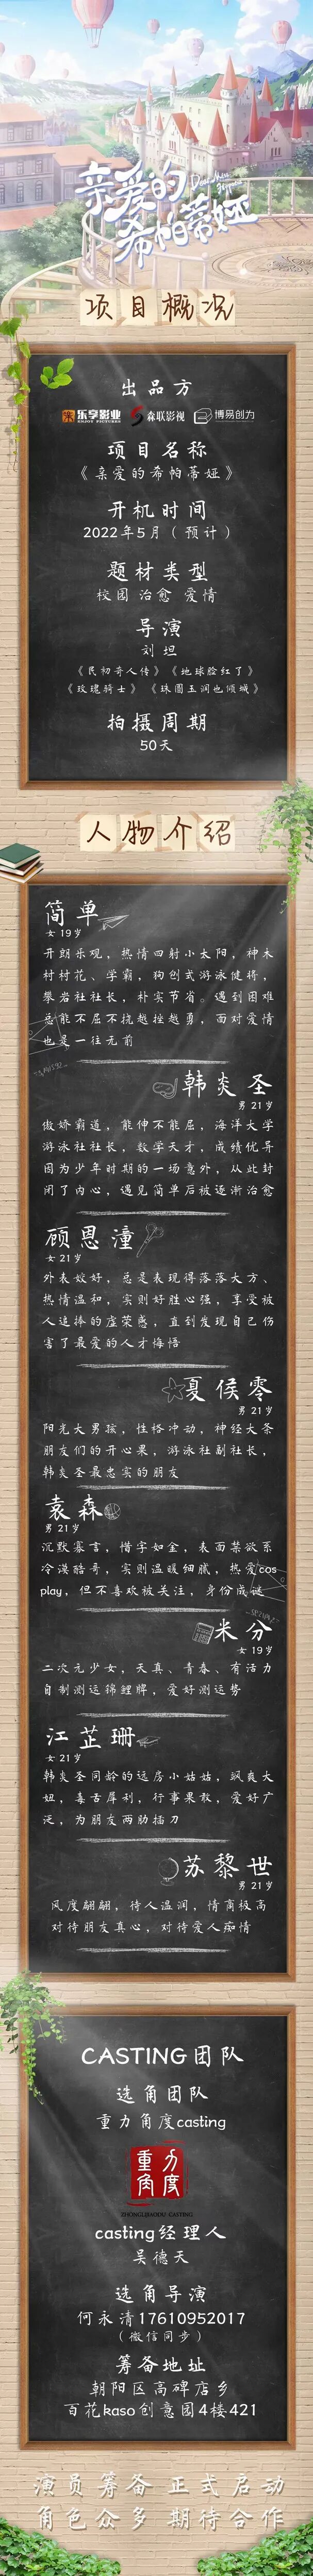 亲爱的
希帕蒂娅
项目概况
出品方
乐享影业
ENJOY PICTURES
森联影视
博易创为
项目名称
《亲爱的希帕蒂娅》
开机时间
2022年5月（预计）
题材类型
校园 治愈 爱情
导演
刘坦
《民初奇人传》《地球脸红了》
《玫瑰骑士》《珠圆玉润也倾城》
拍摄周期
50天
人物介绍
简单
女 19岁
开朗乐观，热情四射小太阳，神木
村村花、学霸，狗刨式游泳健将，
攀岩社社长，朴实节省。遇到困难
总能不屈不挠越挫越勇，面对爱情
也是一往无前
韩炎圣
男 21岁
傲娇霸道，能伸不能屈，海洋大学
游泳社社长，数学天才，成绩优异
因为少年时期的一场意外，从此封
闭了内心，遇见简单后被逐渐治愈
顾恩潼
女 21岁
外表姣好，总是表现得落落大方、
热情温和，实则好胜心强，享受被
人追捧的虚荣感，直到发现自己伤
害了最爱的人才悔悟
夏侯零
男 21岁
阳光大男孩，性格冲动，神经大条
朋友们的开心果，游泳社副社长，
韩炎圣最忠实的朋友
袁森
男 21岁
沉默寡言，惜字如金，表面禁欲系
冷漠酷哥，实则温暖细腻，热爱cos
play，但不喜欢被关注，身份成谜
米分
女 19岁
二次元少女，天真、青春、有活力
自制测运锦鲤牌，爱好测运势
江芷珊
女 21岁
韩炎圣同龄的远房小姑姑，飒爽大
妞，毒舌犀利，行事果敢，爱好广
泛，为朋友两肋插刀
苏黎世
男 21岁
风度翩翩，待人温润，情商极高
对待朋友真心，对待爱人痴情
CASTING团队
选角团队
重力角度casting
重力
角度
ZHONGLIJIAODU CASTING
casting经理人
吴德天
选角导演
何永清17610952017
（微信同步）
筹备地址
朝阳区高碑店乡
百花kaso创意园4楼421
演员筹备 正式启动
角色众多 期待合作